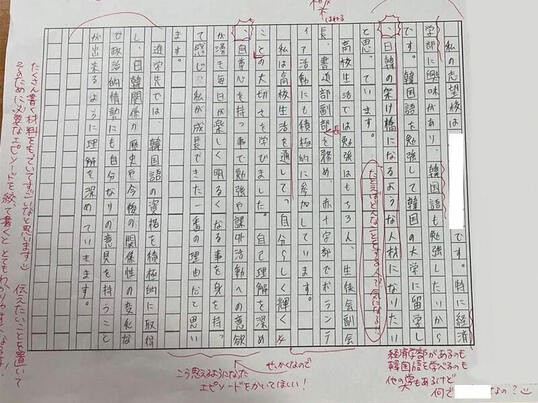 私の志望校は
です。特に経済
学部に興味があり、韓国語も勉強したいから
です。韓国語を勉強して韓国の大学に留学し
、日韓の架け橋になるような人材になりたい
と思っています。
高校生活では勉強はもちろん、生徒会副会
長、書道部副部長を務め、赤十字部でボランテ
ィア活動にも積極的に参加しています。
私は高校生活を通して、自分らしく輝く
ことの大切さを学びました。自己理解を深め
、自尊心を持つ事で勉強や課外活動への意欲
が湧き毎日が楽しく明るくなる事を身を持っ
て感じ、私が成長できた一番の理由だと思い
ます。
進学先では、韓国語の資格を積極的に取得
し、日韓関係の歴史や今後の関係性の変化な
ど政治的情勢にも自分なりの意見を持つこと
が出来るように理解を深めていきます。
経済学部があるのも
韓国語を学べるのも
他の大学もあるけど
何で
なの?
せっかくなので
こう思えるようになった
エピソードをかいてほしい!
たくさん書く材料をもっていてすごいなと思います
伝えたいことを置いて
そのために必要なエピソードを絞って書くととてもわかりやすくなる!